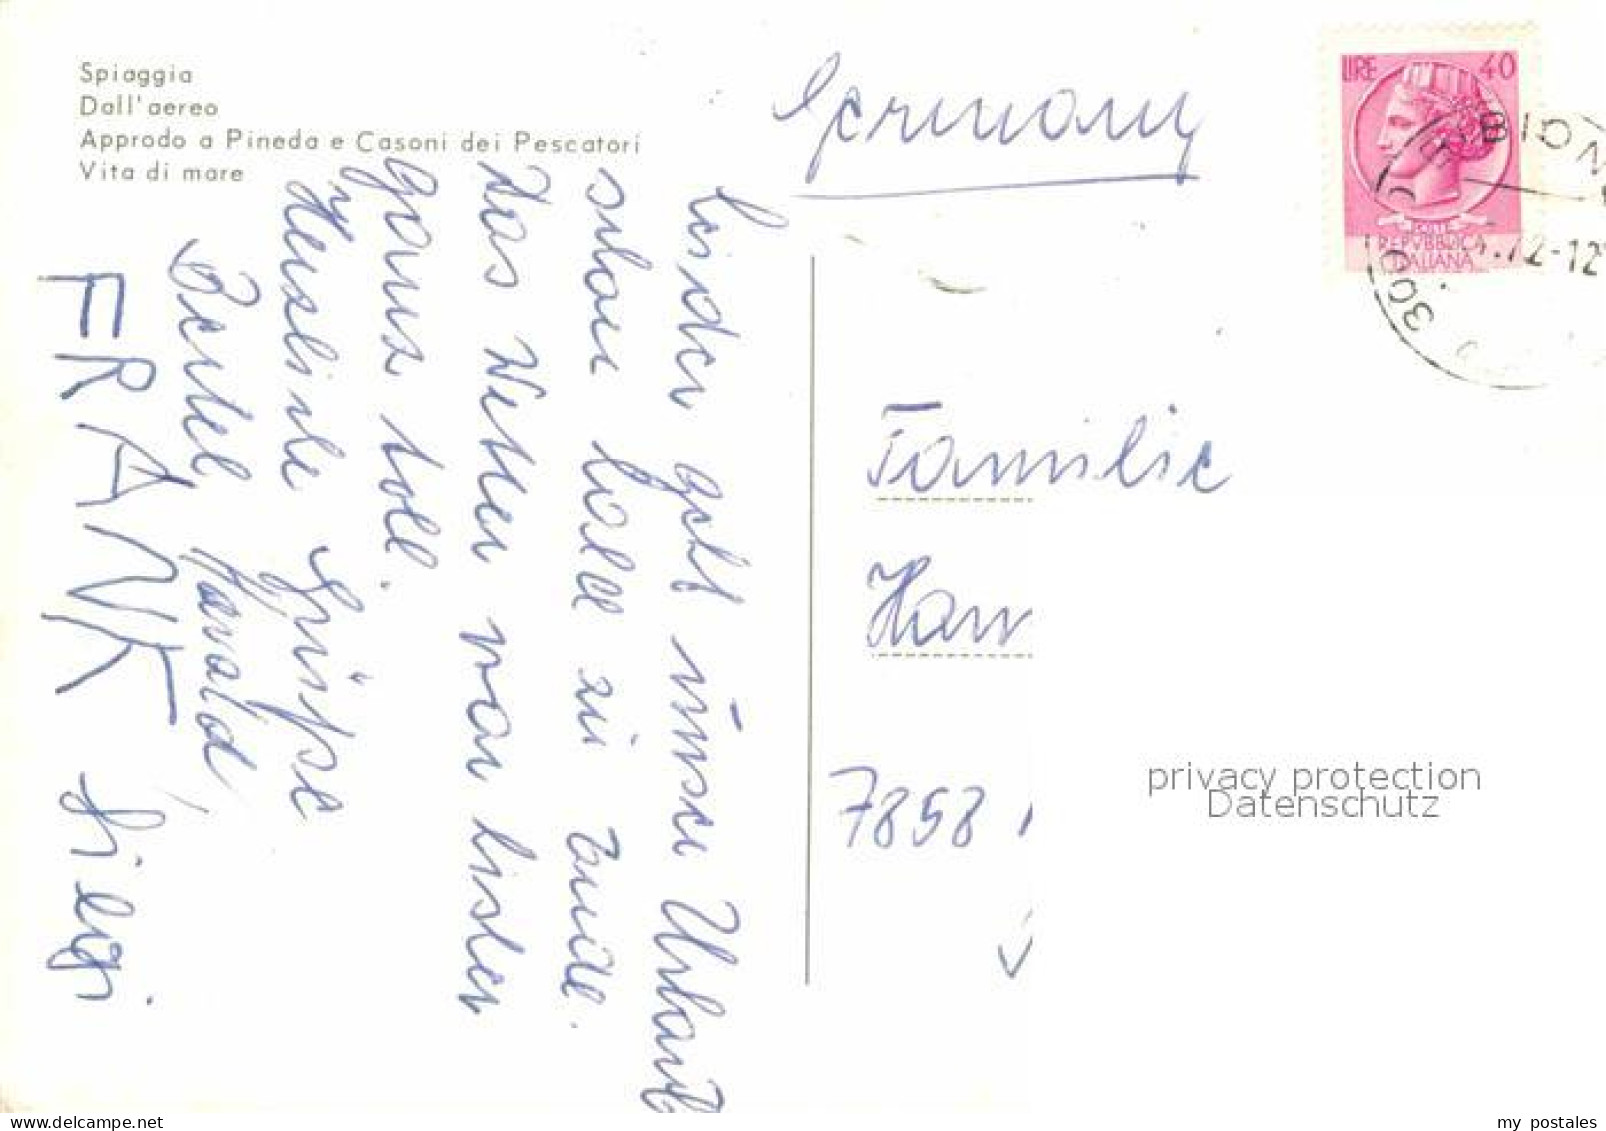 Spiaggia
Dall'aereo
Approdo a Pineda e Casoni dei Pescatori
Vita di mare
Germany
LIRE 40
REPVBBLICA
ITALIANA
Leider geht unser Urlaub
schon bald zu Ende.
Das Wetter war bisher
ganz toll.
Herzliche Grüße
Bertel Harald
FRANK Sigi
Familie
7858
privacy protection
Datenschutz
delcampe.net
my_postales